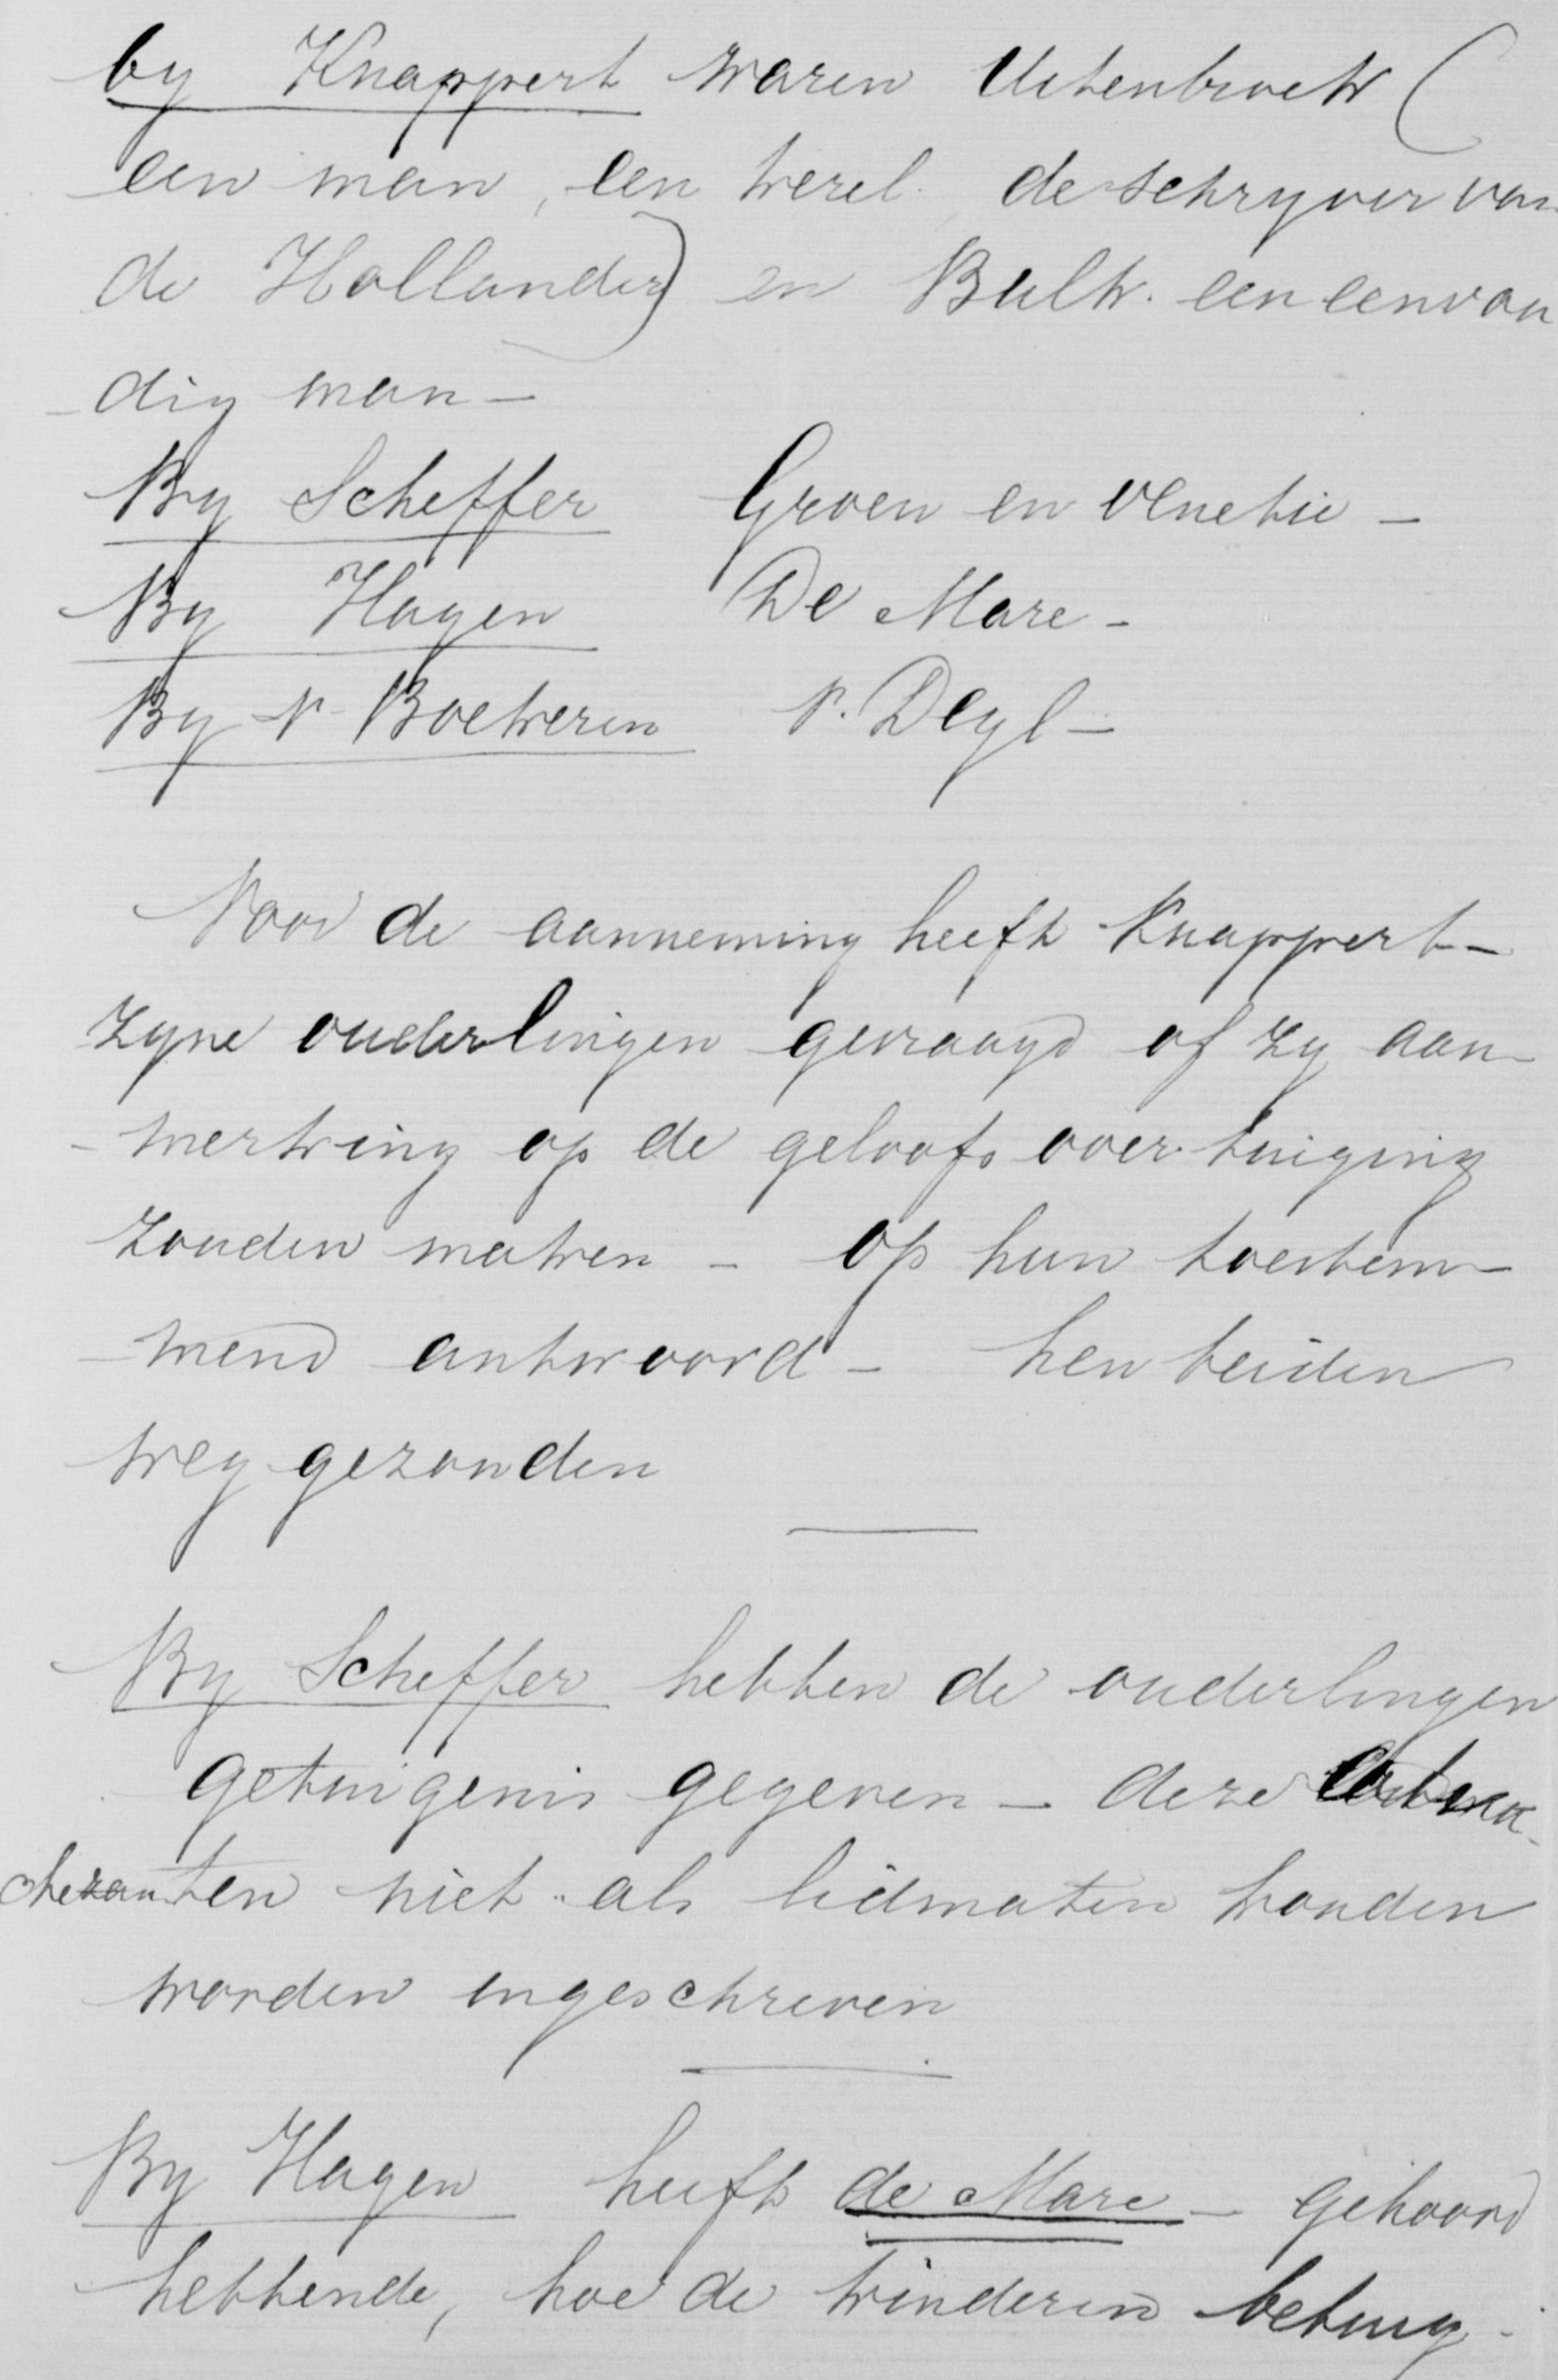 by Knappert waren Uitenbroek (
een man, een kerel de schryver van
de Hollander) en Bulk. een eenvou
- dig man -
By Scheffer Groen en Venetie -
By Hagen De Mare -
By v Boekeren v. Deyl -
Voor de aanneming heeft Knappert -
zyne ouderlingen gevraagd of zy aan-
- merking op de geloofs overtuiging
zouden maken - op hun toestem-
- mend antwoord - hen beiden
weg gezonden
By Scheffer hebben de ouderlingen
getuigenis gegeven - deze
niet als lidmaten konden
worden ingeschreven
By Hagen heeft de Mare - gehoord
hebbende, hoe de kinderen betuig-